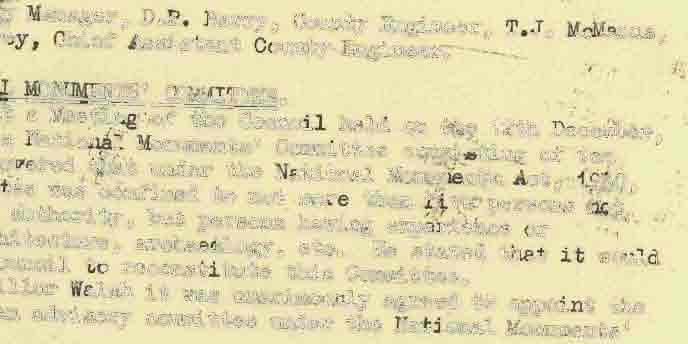 Manager, D.P. Barry, County Engineer, T.J. McManus,
Chief Assistant County Engineer.
MONUMENTS' COMMITTEE.
a Meeting of the Council held on the 12th December,
National Monuments' Committee consisting of ten
that under the National Monuments Act, 1930,
was confined to not more than five persons not
authority, but persons having expertise or
archaeology, etc. He stated that it would
to reconstitute this Committee.
Walsh it was unanimously agreed to appoint the
advisory committee under the National Monuments'